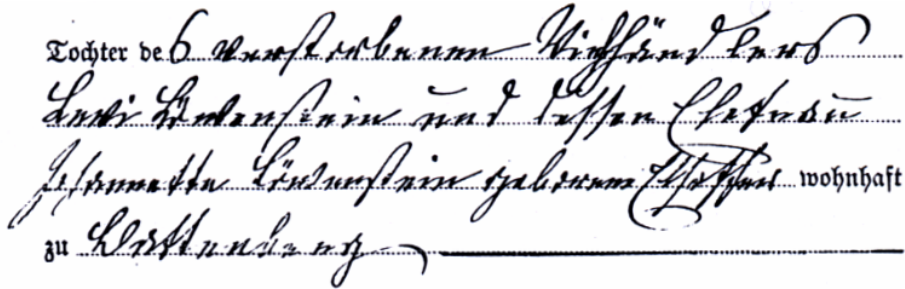 Tochter des verstorbenen Viehhändlers
Levi Löwenstein und dessen Ehefrau
Johannette Löwenstein geborene wohnhaft
zu Battenberg